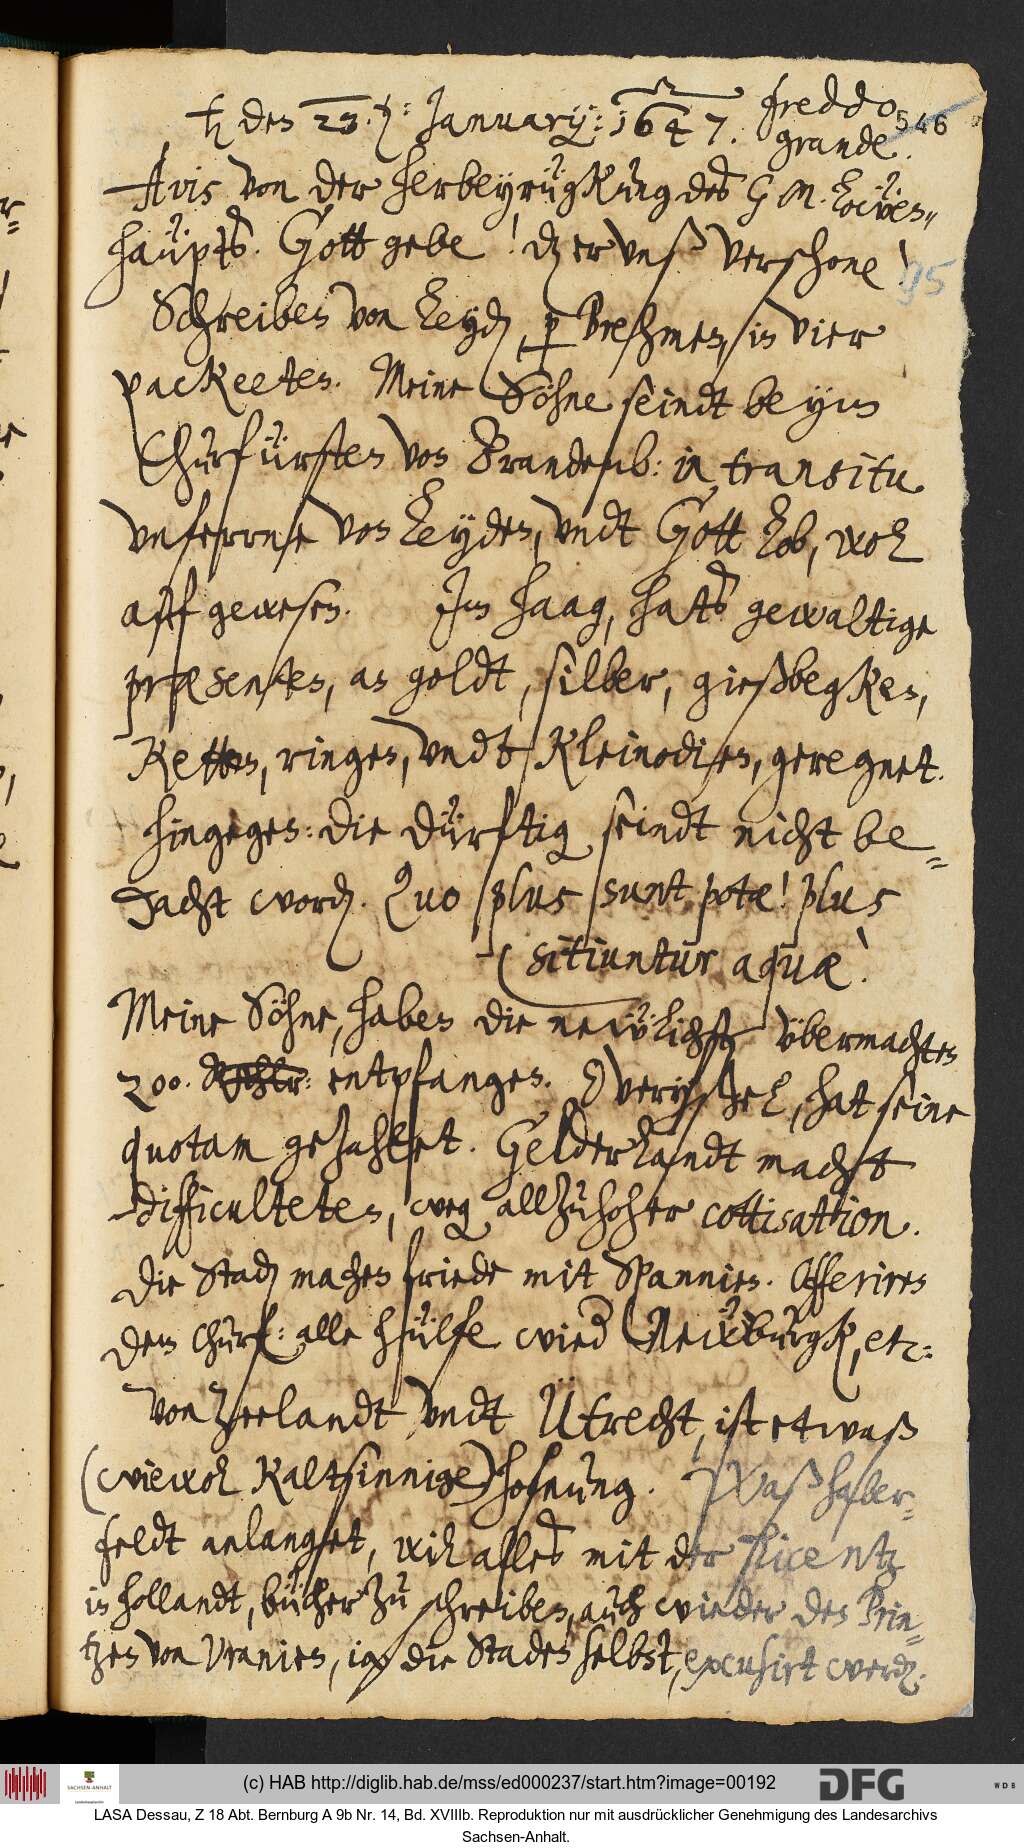 ♄ den 23.ten: January: 1647. freddo
grande. 546
Avis von der herbeyrügkung des G M. Löwen-
haüpts. Gott gebe! dz er vnß verschone!
95
Schreiben von Leyd(en), p(er) Brehmen, in vier
packeeten. Meine Söhne seindt beym
Churfürsten von Brandenb: in transitu
vnferrne von Leyden, vndt Gott lob, wol
auf gewesen. Im Haag, hats gewaltige
præsenten, an goldt, silber, gießbegken,
Ketten, ringen, vndt Kleinodien, geregnet.
Hingegen: die dürftig(en) seindt nicht be-
dacht word(en). Quo plus sunt potæ! plus
(sitiuntur aquæ!
Meine Söhne, haben die neẅlichst übermachten
200. Rchtlr: entpfangen. Overyßel, hat seine
quotam gezahlet. Gelderlandt macht
difficulteten, weg(en) allzuhoher cottisattion.
Die Stad(en) machen friede mit Spannien. Offeriren
dem Churf: alle hülfe wied(er) Neẅburgk, etc:
Von Zeelandt vndt Ütrecht, ist etwaß
(wiewol kaltsinnige) hofnung. Waß haber-
feldt anlanget, wil alles mit der licentz
in Hollandt, bücher zu schreiben, auch wieder den Prin-
tzen von Uranien, ia die Staden selbst, excusirt werd(en).
(c) HAB http://diglib.hab.de/mss/ed000237/start.htm?image=00192
SACHSEN-ANHALT
DFG
WDB
LASA Dessau, Z 18 Abt. Bernburg A 9b Nr. 14, Bd. XVIIIb. Reproduktion nur mit ausdrücklicher Genehmigung des Landesarchivs
Sachsen-Anhalt.